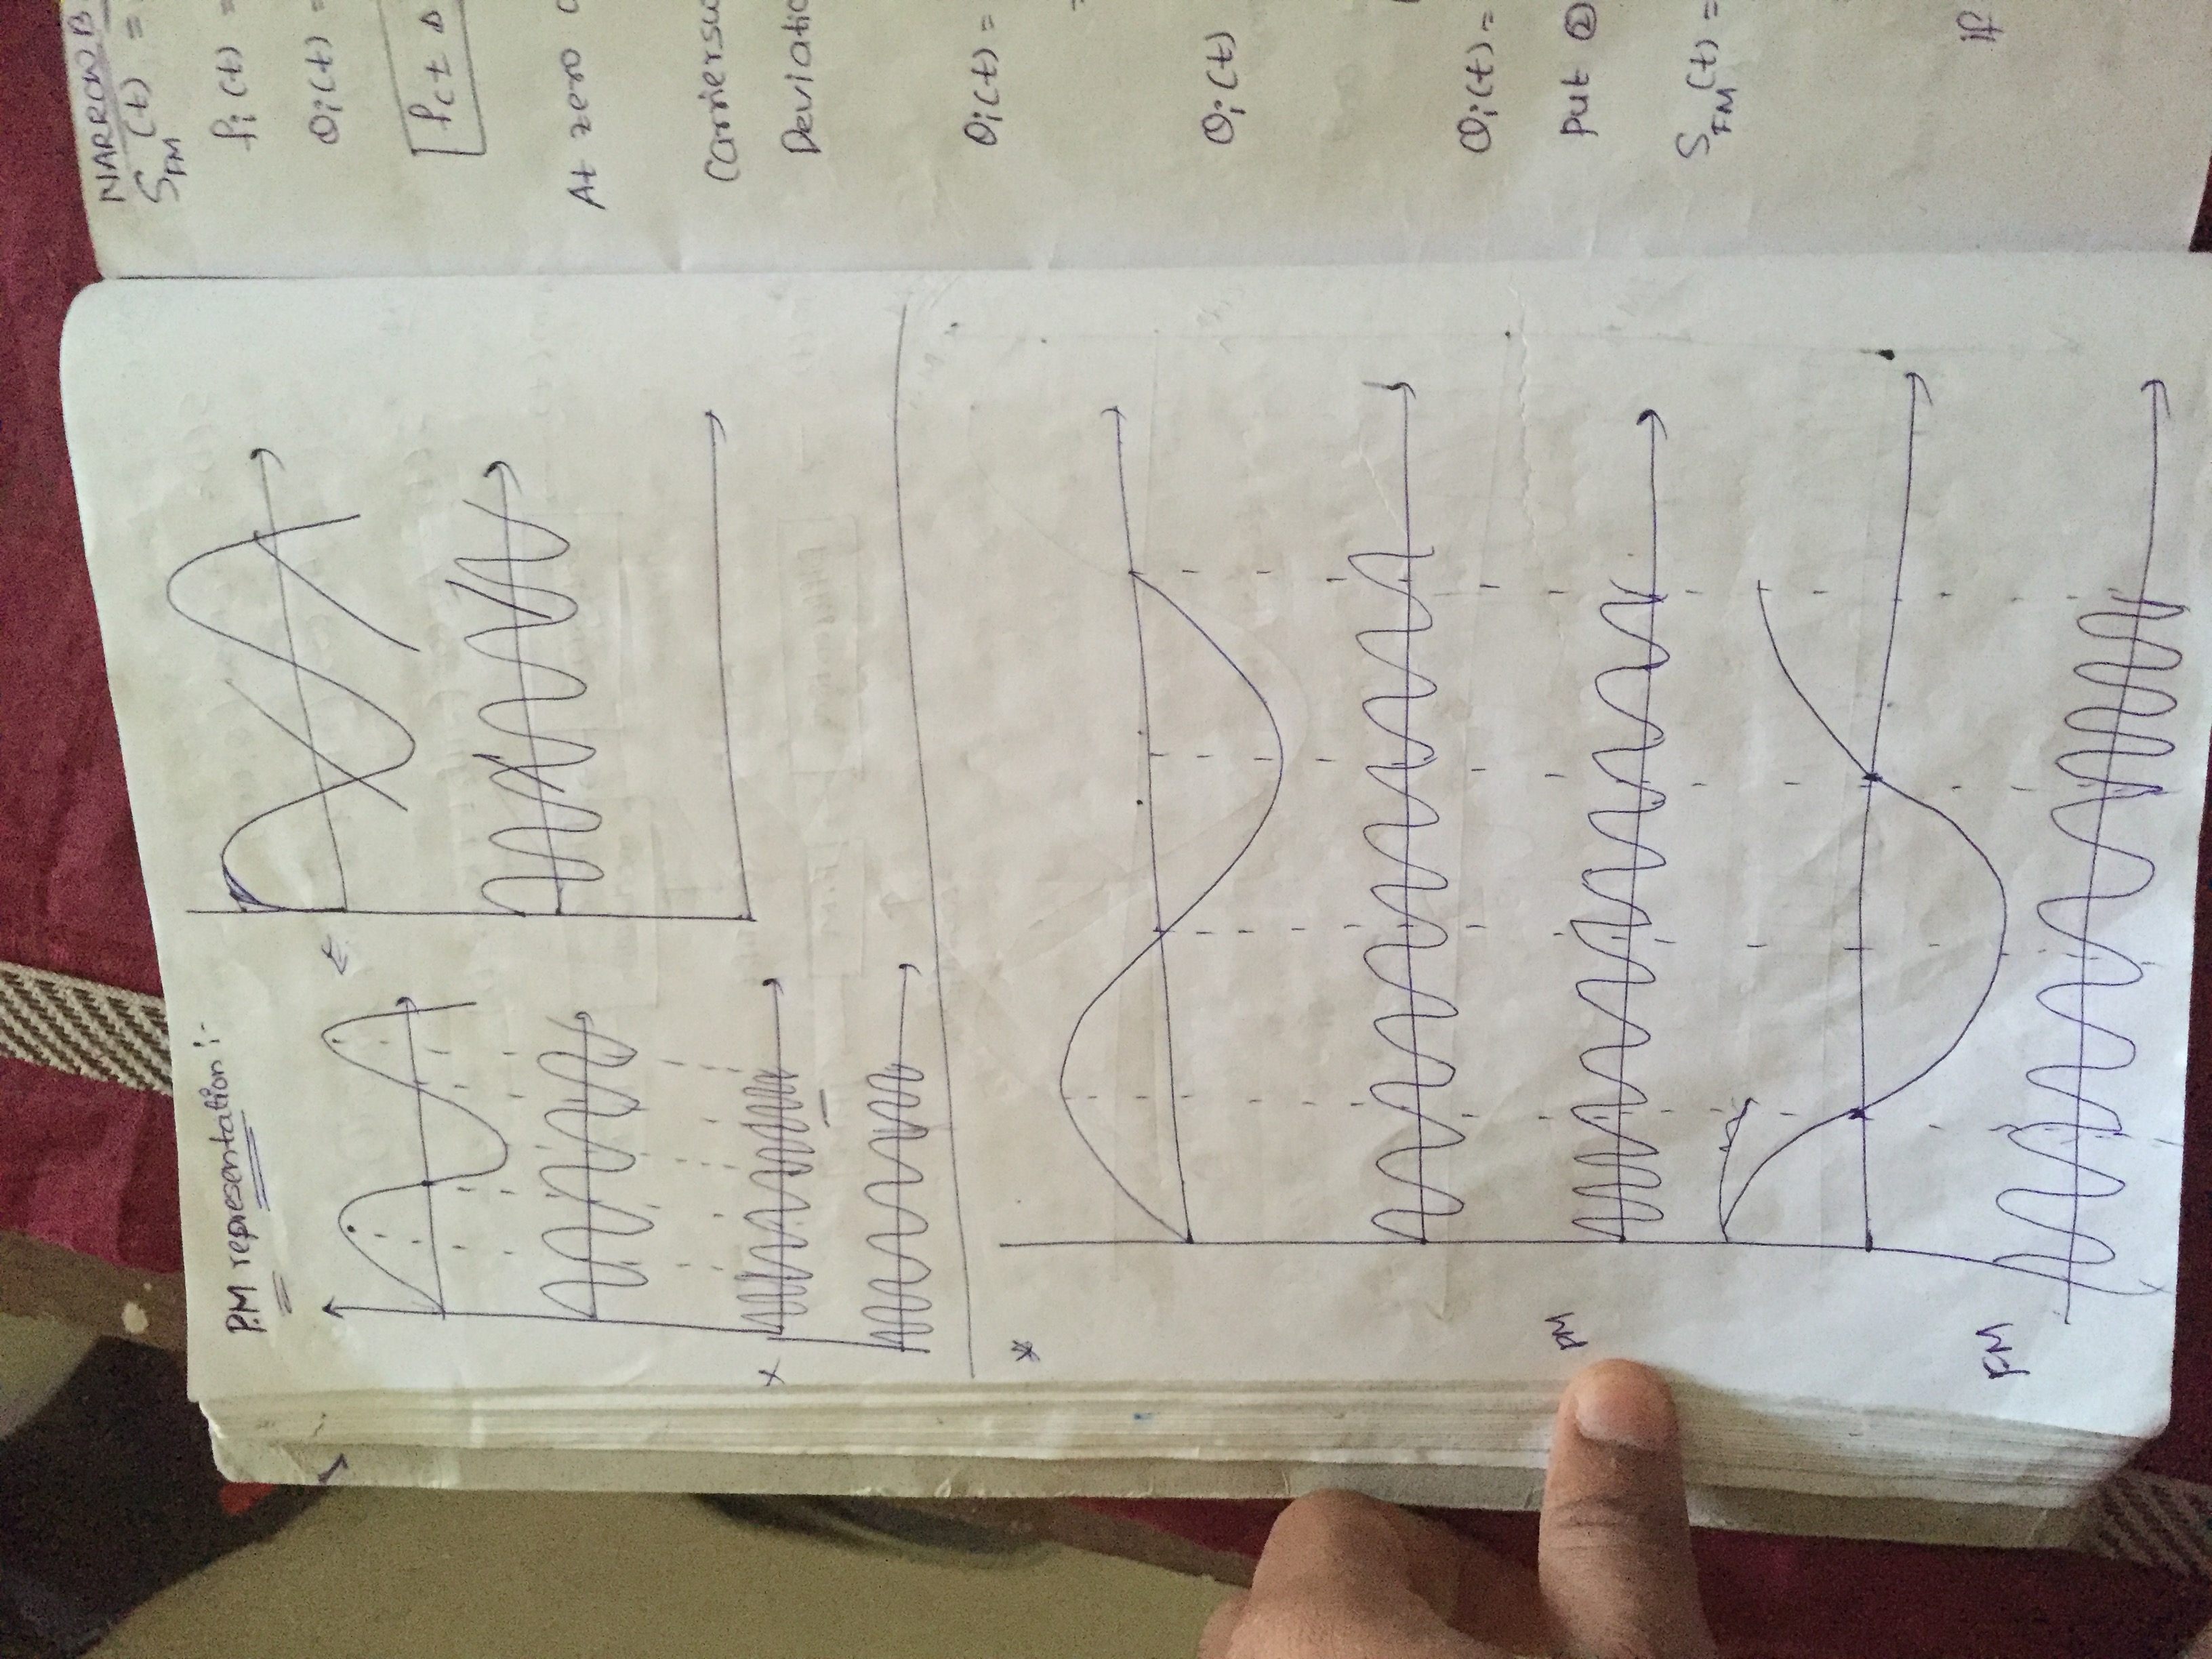 P.M representation :-
PM
FM
NARROW B
S_FM(t) =
f_i(t) =
θ_i(t) =
f_c ± Δ
At zero
Carriersw
Deviatio
θ_i(t) =
=
θ_i(t)
θ_i(t) =
Put ②
S_FM(t) =
If